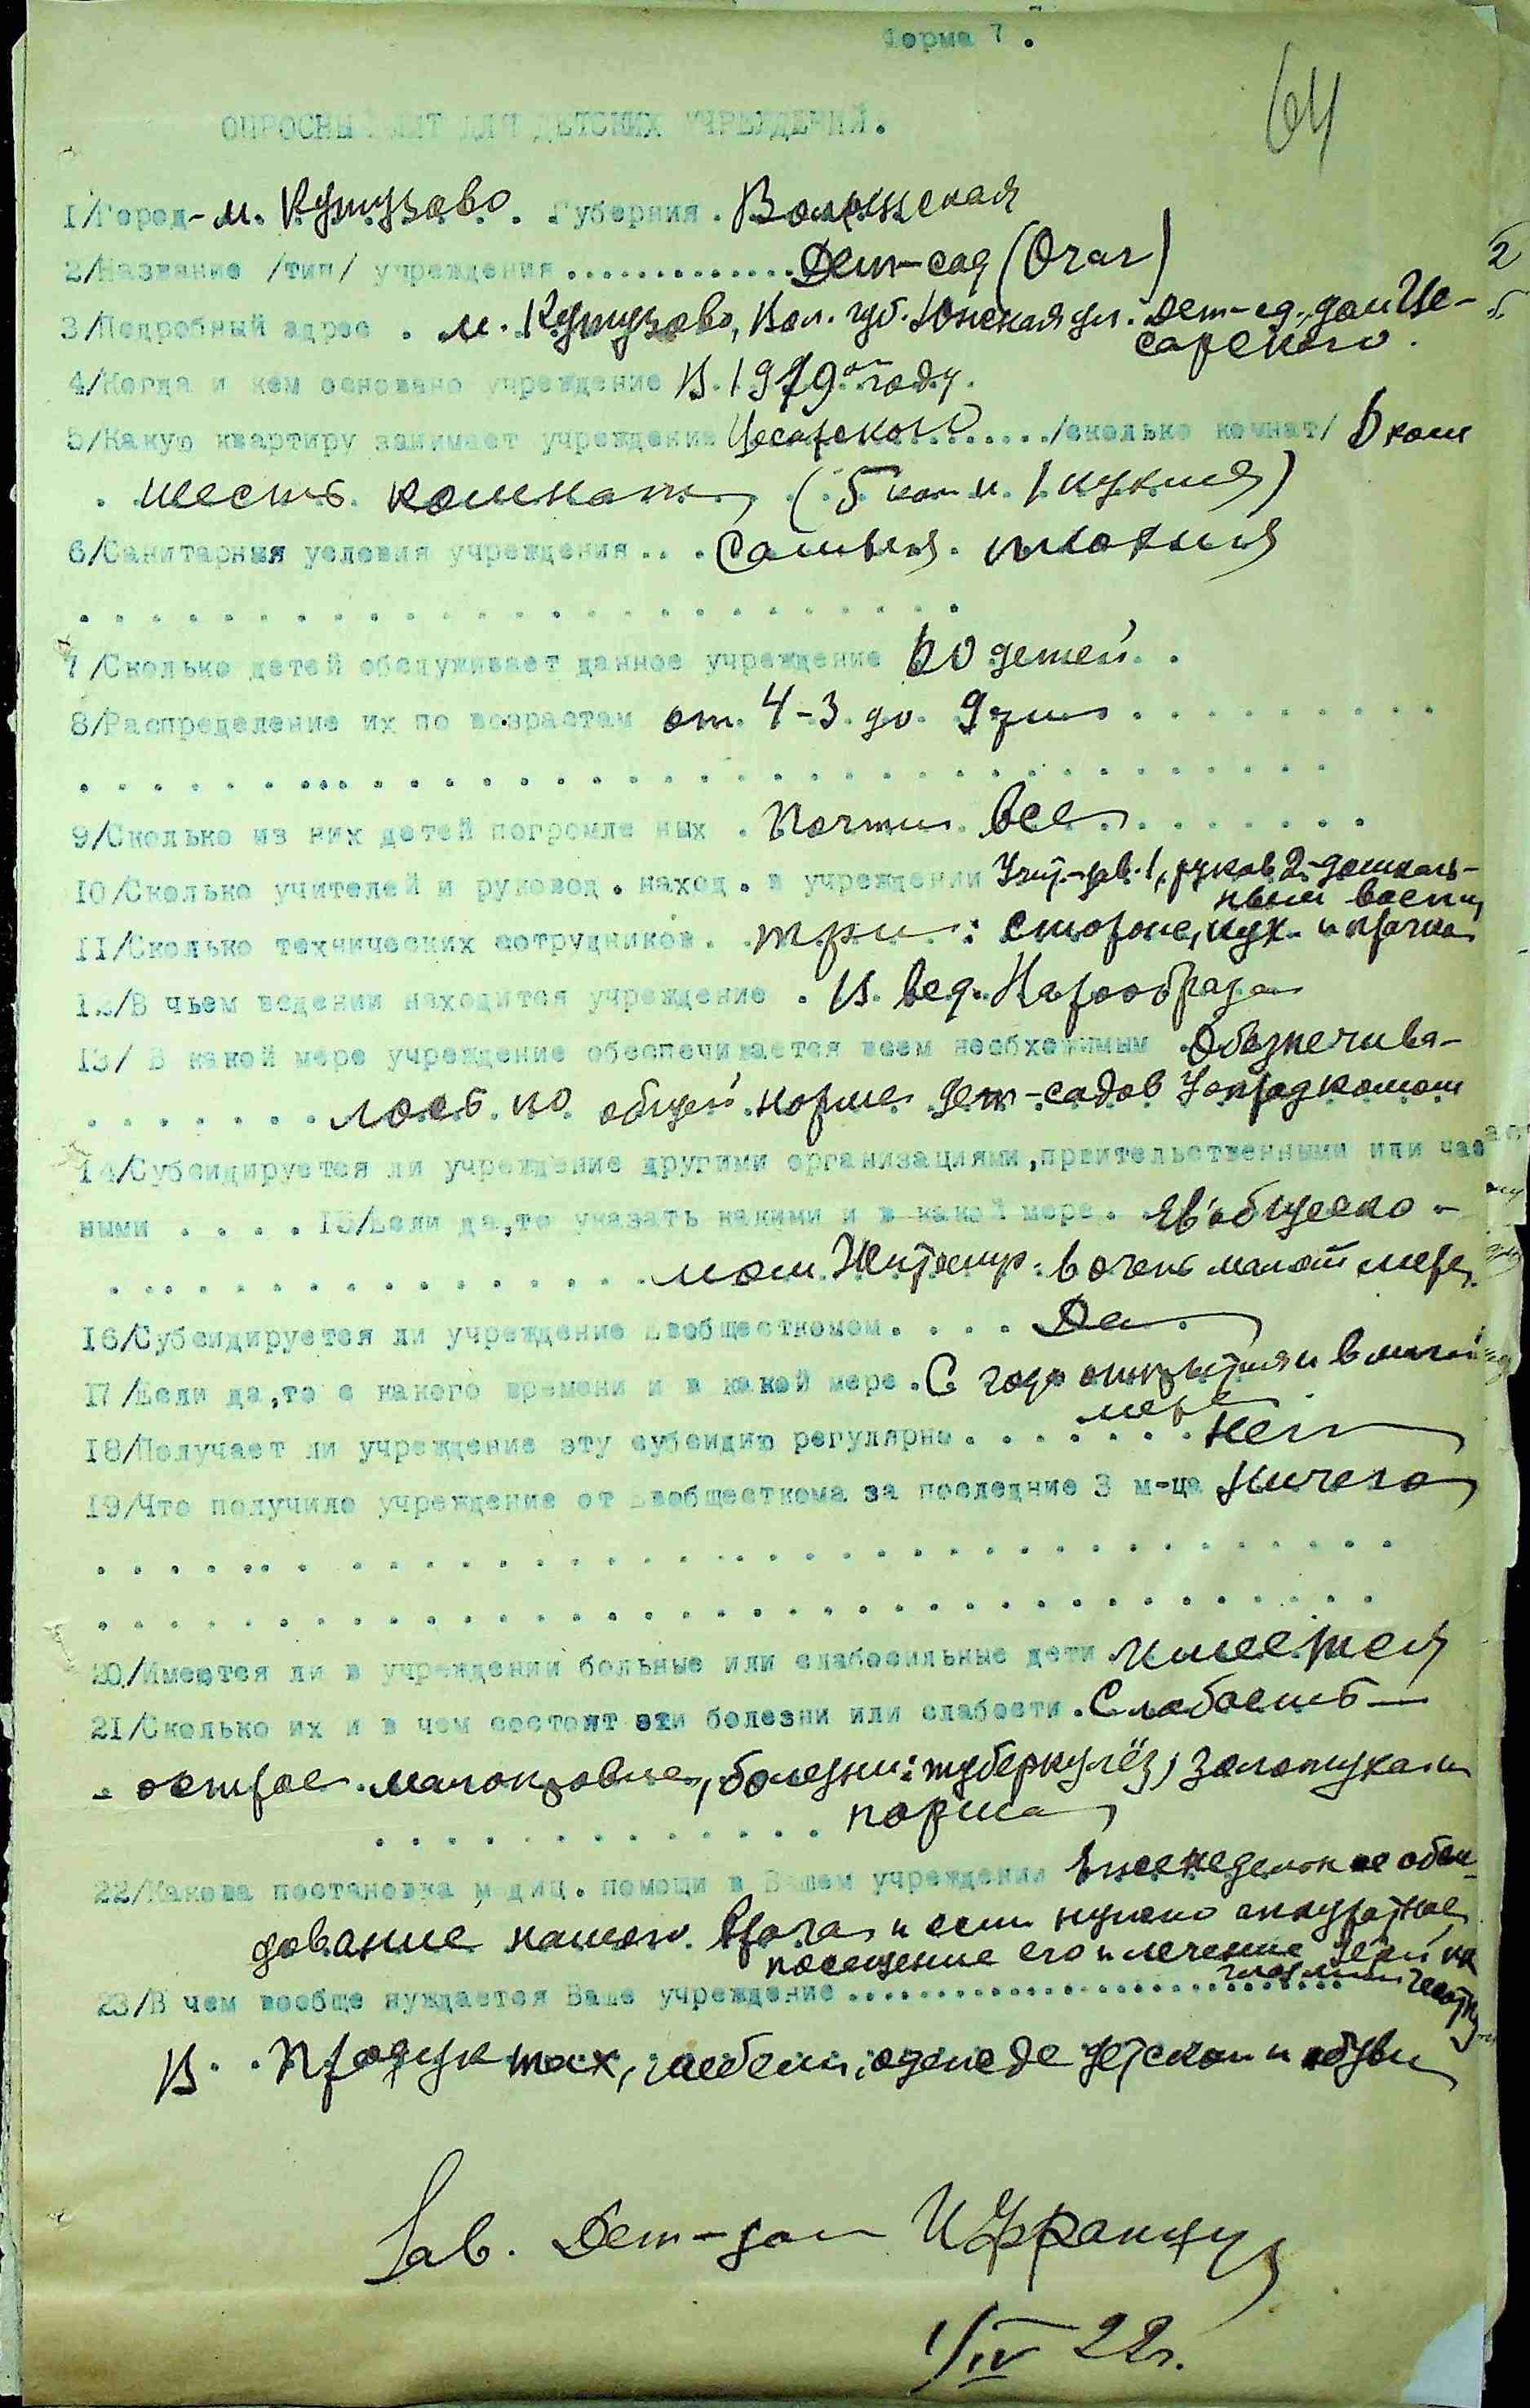 Форма 7.
64
ОПРОСНЫ ЛИТ ДЛЯ ДЕТСКИХ УЧРЕЖДЕНИЙ.
1/Город - м. Кутузово. Губерния. Волынская
2/Название /тип/ учреждения ............. Дет-сад (Очаг)
3/Подробный адрес . м. Кутузово, Вол. губ. ул. Дет-сад, дом Це-
сарского.
4/Когда и кем основано учреждение В. 1919ом году.
5/Какую квартиру занимает учреждение Цесарского ...... /сколько комнат/ 6 ком
. шесть комнат (5 ком и 1 кухня)
6/Санитарныя условия учреждения... Самыя плохия
7/Сколько детей обслуживает данное учреждение 60 детей..
8/Распределение их по возрастам от 4-3 до 9 лет
9/Сколько из них детей погромле ных . Почти все
10/Сколько учителей и руковод. наход. в учреждении зав. 1, руков 2-дошколь-
ный воспит
11/Сколько технических сотрудников. три: сторож, кух. и прачка
12/В чьем ведении находится учреждение . В. вед. Наробраза
13/ В какой мере учреждение обеспечивается всем необхожимым Обезпечива-
лось по общей норме дет-садов Упродкомом
14/Субсидируется ли учреждение другими организациями, првительственными или час
ными .... 15/Если да, то указать какими и в какой мере. Евобщеско-
мом Житомир. в очень малой мере.
16/Субсидируется ли учреждение Евобщесткомом.... Да
17/Если да, то с какого времени и в какой мере. С года открытия и в малой
мере
18/Получает ли учреждение эту субсидию регулярно....... Нет
19/Что получило учреждение от Евобщесткома за последние 3 м-ца Ничего
20/Имеются ли в учреждении больные или слабосильные дети Имеется
21/Сколько их и в чем состоят эти болезни или слабости. Слабость —
- острое малокровие, болезни: туберкулёз, золотуха и
парша
22/Какова постановка медиц. помощи в Вашем учреждении Еженедельное обсле-
дование нашего врача и если нужно аккуратное
посещение его и лечение детей на
23/В чем вообще нуждается Ваше учреждение ..............................
В. Продуктах, мебели, одежде детской и обуви
Зав. Дет-дом И Француз
1/IV 22г.